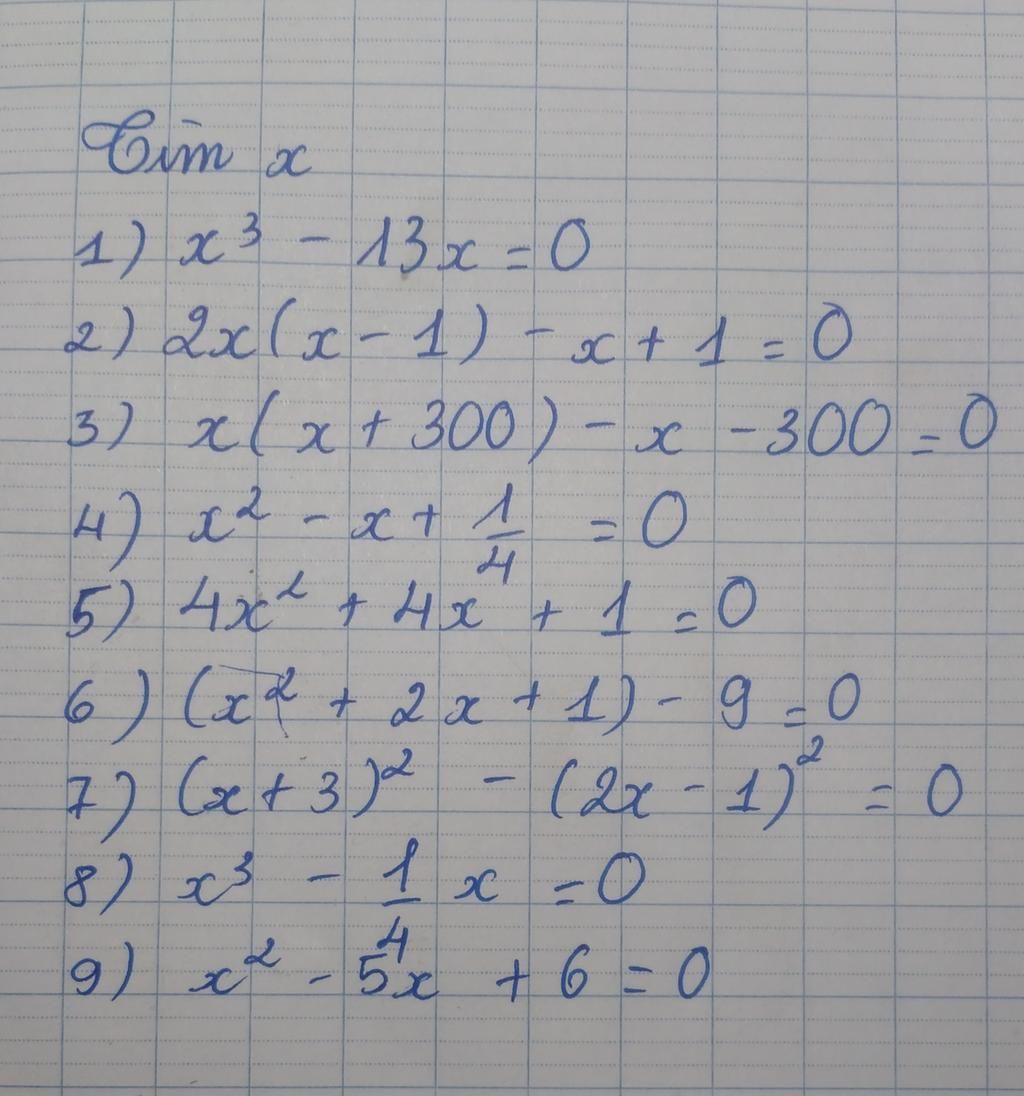 Tìm x
1) x³ - 13x = 0
2) 2x(x - 1) - x + 1 = 0
3) x(x + 300) - x - 300 = 0
4) x² - x + 1/4 = 0
5) 4x² + 4x + 1 = 0
6) (x² + 2x + 1) - 9 = 0
7) (x + 3)² - (2x - 1)² = 0
8) x³ - 1/4 x = 0
9) x² - 5x + 6 = 0